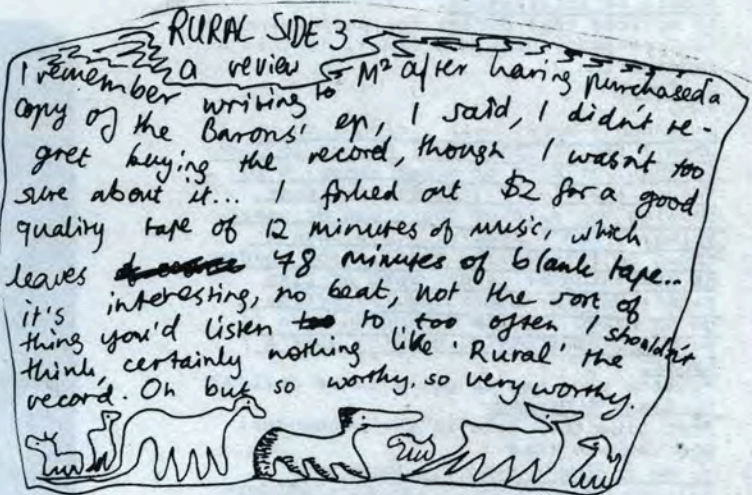 RURAL SIDE 3
a review
I remember writing to M² after having purchased a
copy of the Barons' ep, I said, I didn't re-
gret buying the record, though I wasn't too
sure about it... I forked out $2 for a good
quality tape of 12 minutes of music, which
leaves 48 minutes of blank tape...
it's interesting, no beat, not the sort of
thing you'd listen to too often I shouldn't
think, certainly nothing like 'Rural' the
record. Oh but so worthy, so very worthy.